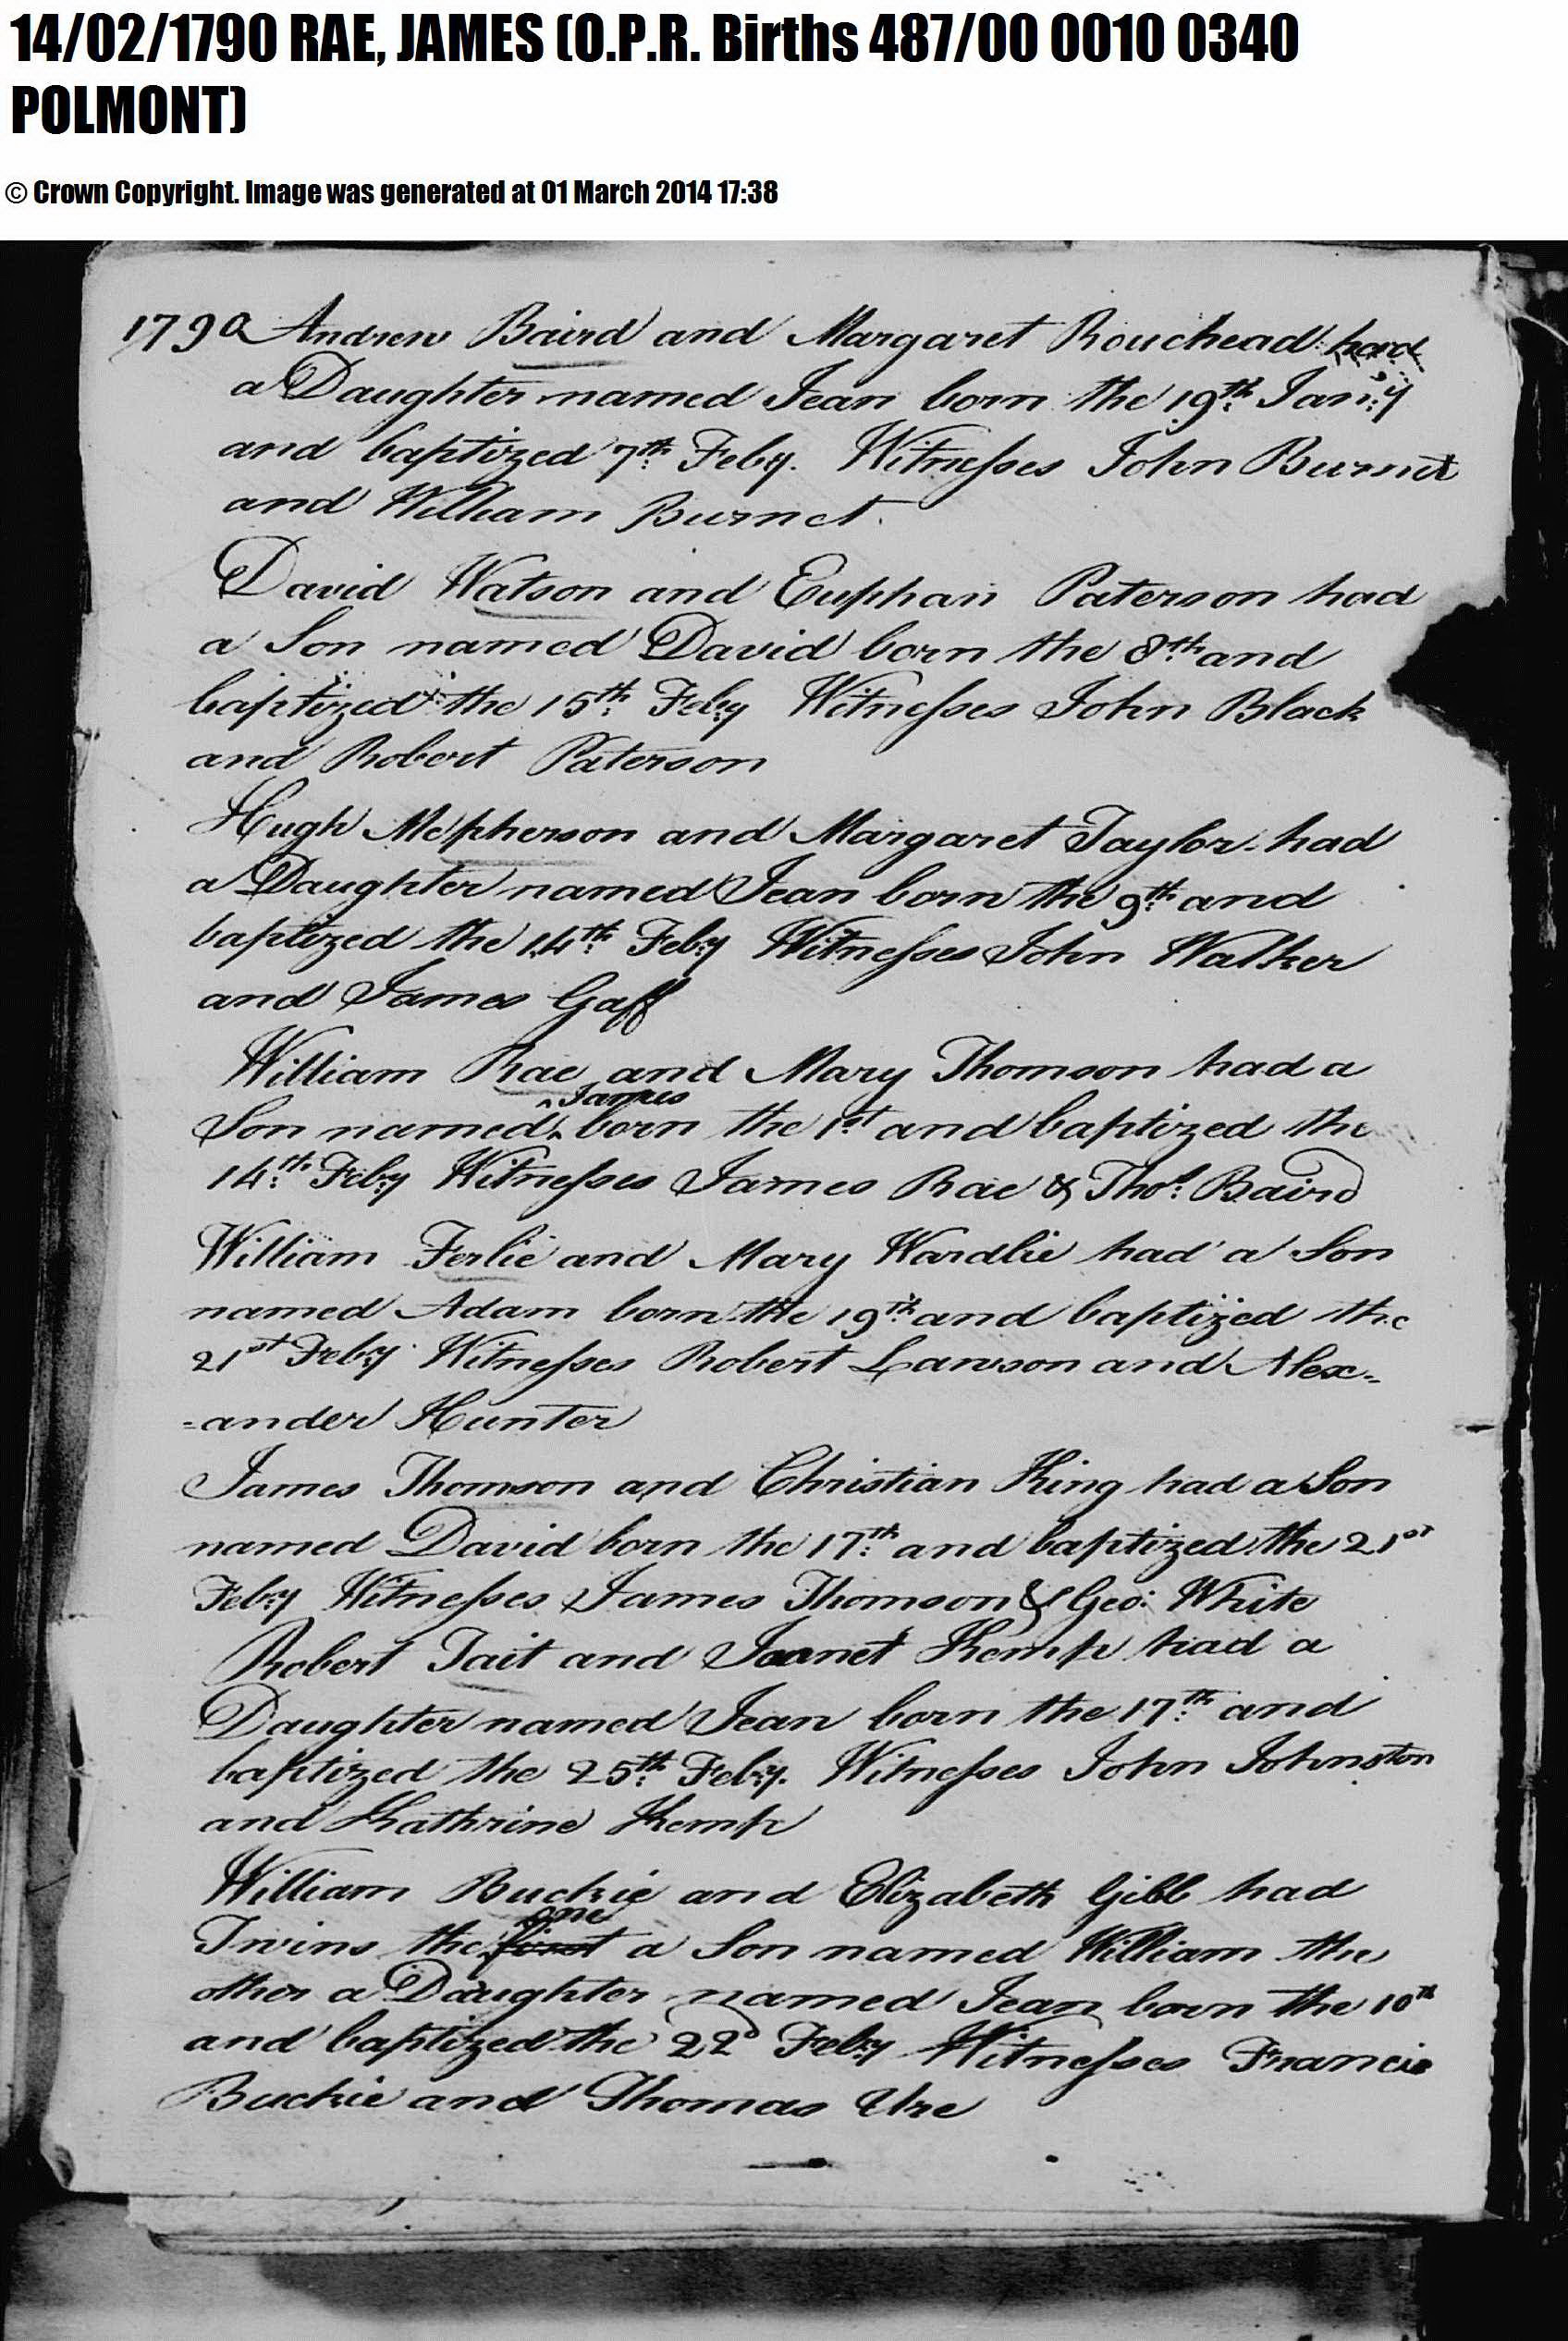 14/02/1790 RAE, JAMES (O.P.R. Births 487/00 0010 0340
POLMONT)
© Crown Copyright. Image was generated at 01 March 2014 17:38
1790 Andrew Baird and Margaret Rouchead had
a Daughter named Jean born the 19th Jan:y
and baptized 7th Feby. Witnesses John Burnet
and William Burnet.
David Watson and Euphan Paterson had
a Son named David born the 8th and
baptized the 15th Feby Witnesses John Black
and Robert Paterson
Hugh Mcpherson and Margaret Taylor had
a Daughter named Jean born the 9th and
baptized the 14th Feby Witnesses John Walker
and James Gaff
William Rae and Mary Thomson had a
Son named ^James born the 1st and baptized the
14th Feby Witnesses James Rae & Thos: Baird
William Ferlie and Mary Wardlie had a Son
named Adam born the 19th and baptized the
21st Feby Witnesses Robert Lawson and Alex-
-ander Hunter
James Thomson and Christian King had a Son
named David born the 17th and baptized the 21st
Feby Witnesses James Thomson & Geo: White
Robert Tait and Jeanet Kemp had a
Daughter named Jean born the 17th and
baptized the 25th Feby. Witnesses John Johnston
and Kathrine Kemp
William Buckie and Elizabeth Gibb had
Twins the first one a Son named William the
other a Daughter named Jean born the 10th
and baptized the 22d Feby Witnesses Francis
Buckie and Thomas Ure